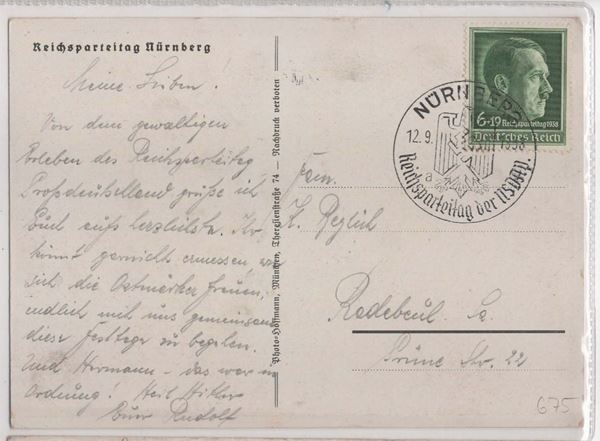 Reichsparteitag Nürnberg
Meine Lieben!
Von dem gewaltigen
Erleben des Reichsparteitag
Großdeutschland grüße ich
Euch aufs herzlichste. Ihr
könnt garnicht ermessen, wie
sich die Ostmärker freuen,
endlich mit uns gemeinsam
diese Festtage zu begehen.
Und Hermann – das war in
Ordnung! Heil Hitler
Euer Rudolf
Photo-Hoffmann, München, Theresienstraße 74 — Nachdruck verboten
6+19 Reichsparteitag 1938
Deutsches Reich
NÜRNBERG
12.9. 1938
a
Reichsparteitag der NSDAP.
Fam.
K.
Radebeul Sa.
Nr. 22
675